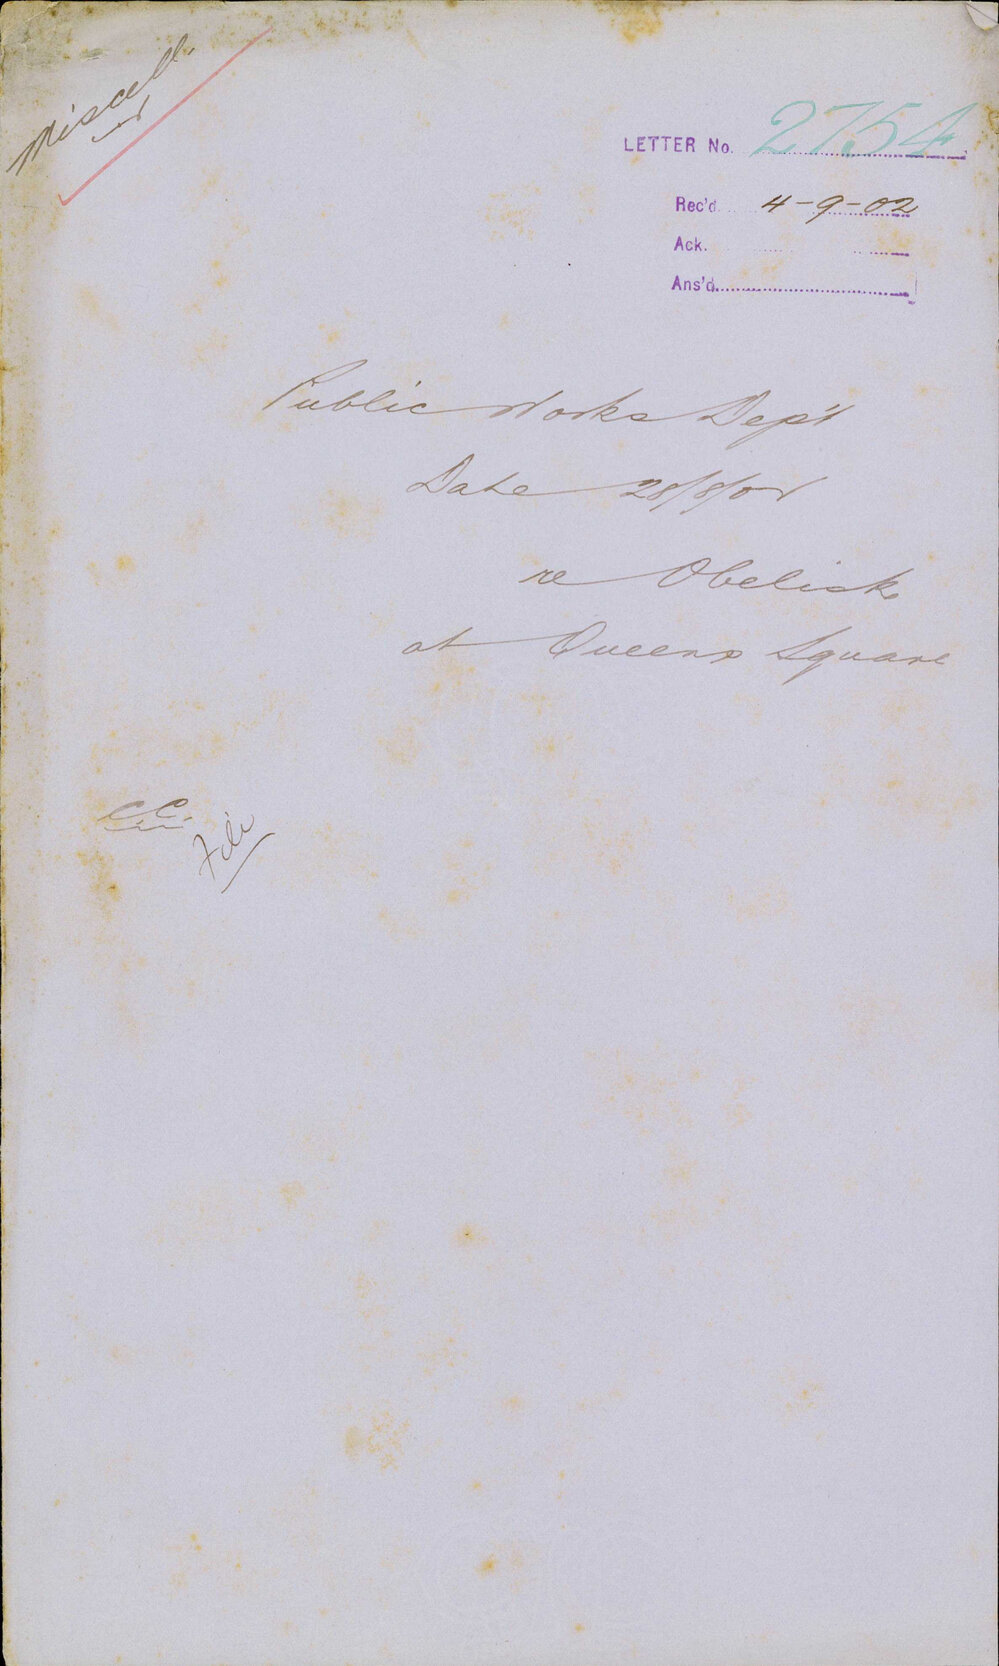 Miscell.
LETTER No. 2754
Rec'd 4-9-02
Ack.
Ans'd.
Public Works Dep't
Date 28/8/02
re Obelisk
at Queens Square
C.C.
File